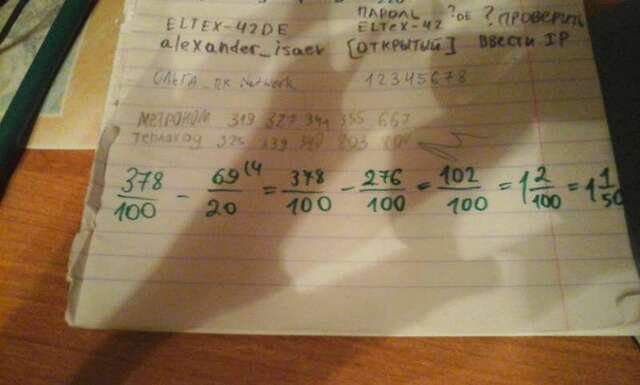 ПАРОЛЬ
ELTEX-42DE ELTEX-42 ?DE ? ПРОВЕРИТЬ
alexander_isaev [ОТКРЫТЫЙ] ВВЕСТИ IP
ОЛЬГА_ПК network 12345678
МЕТРОНОМ 319 327 341 355 667
ТЕПЛОХОД 325 339 340
378/100 - 69(4/20 = 378/100 - 276/100 = 102/100 = 1 2/100 = 1 1/50